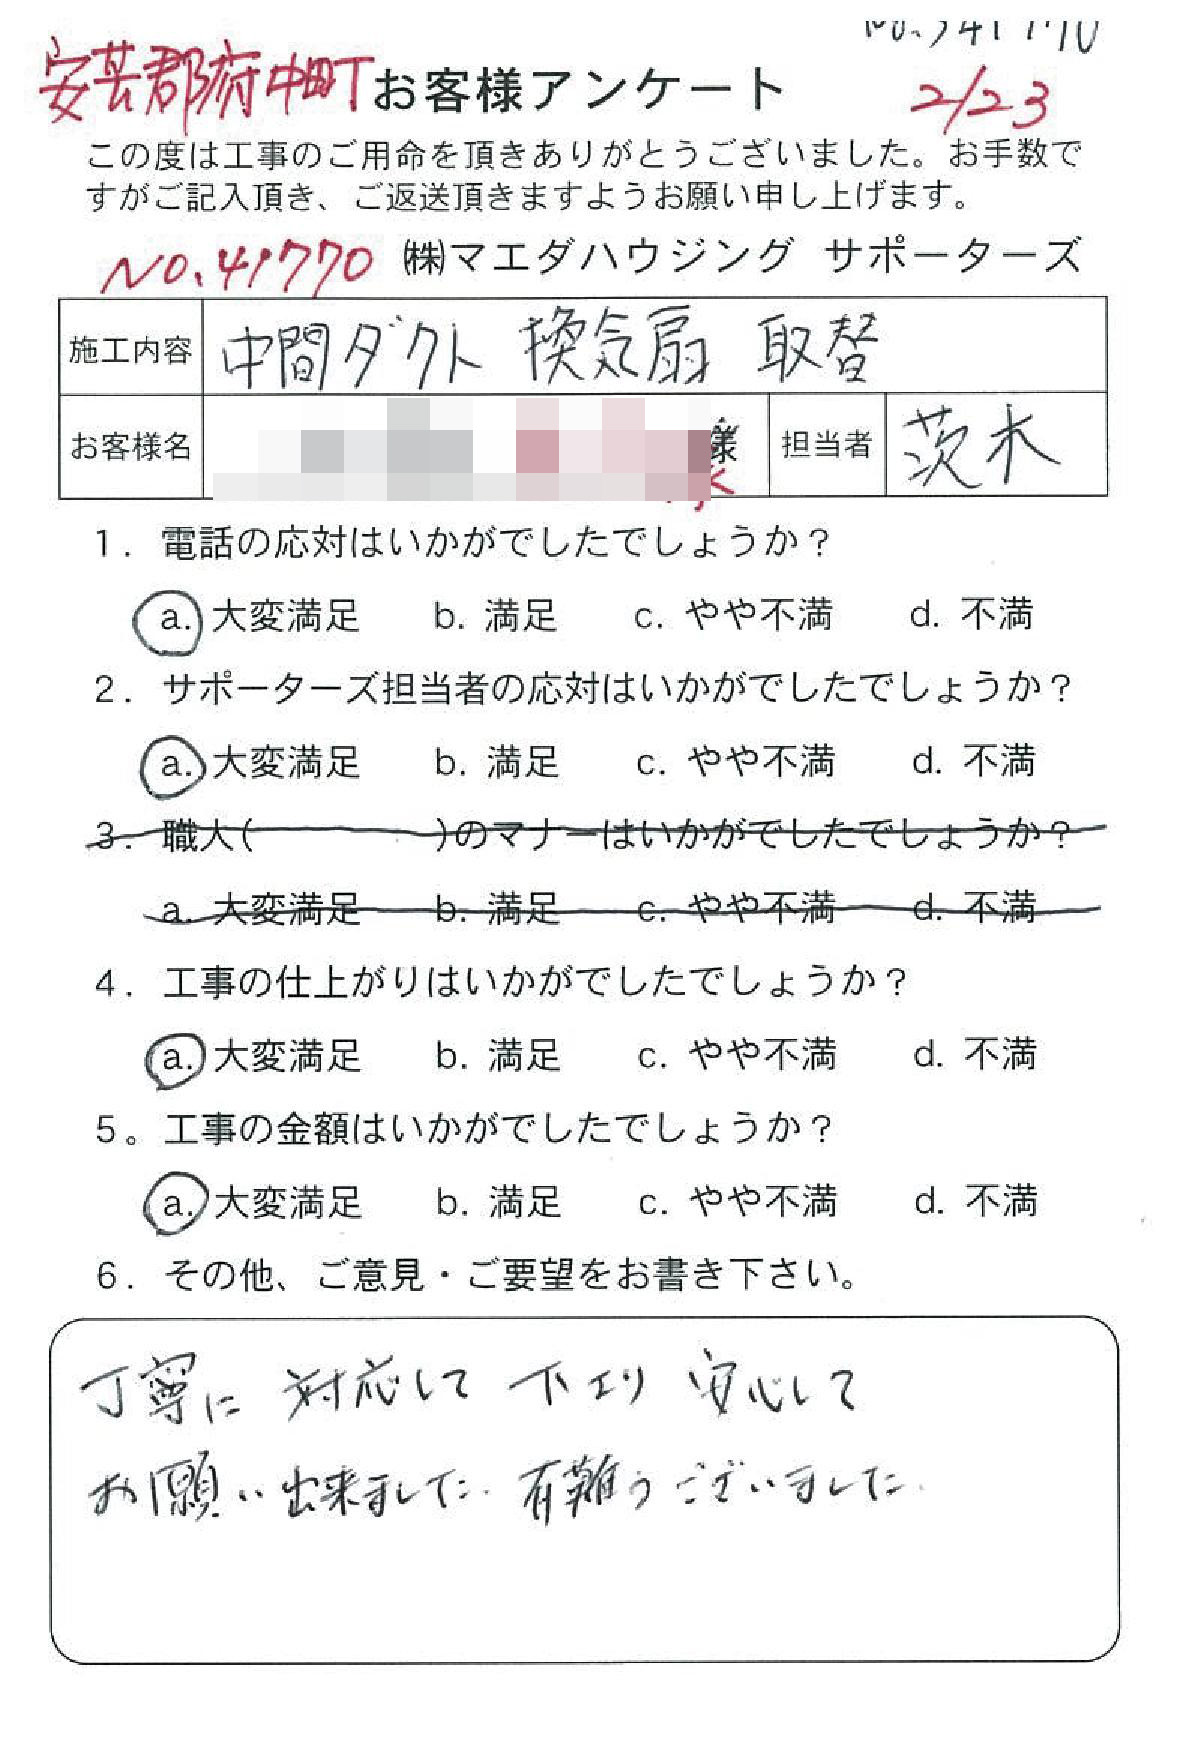 安芸郡府中町 お客様アンケート 2/23
この度は工事のご用命を頂きありがとうございました。お手数で
すがご記入頂き、ご返送頂きますようお願い申し上げます。
NO.41770 ㈱マエダハウジング サポーターズ
施工内容 中間ダクト 換気扇 取替
お客様名 様 担当者 茨木
1. 電話の応対はいかがでしたでしょうか?
a. 大変満足 b. 満足 c. やや不満 d. 不満
2. サポーターズ担当者の応対はいかがでしたでしょうか?
a. 大変満足 b. 満足 c. やや不満 d. 不満
3. 職人( )のマナーはいかがでしたでしょうか?
a. 大変満足 b. 満足 c. やや不満 d. 不満
4. 工事の仕上がりはいかがでしたでしょうか?
a. 大変満足 b. 満足 c. やや不満 d. 不満
5。工事の金額はいかがでしたでしょうか?
a. 大変満足 b. 満足 c. やや不満 d. 不満
6. その他、ご意見・ご要望をお書き下さい。
丁寧に 対応して 下さり 安心して
お願い出来ました. 有難うございました.